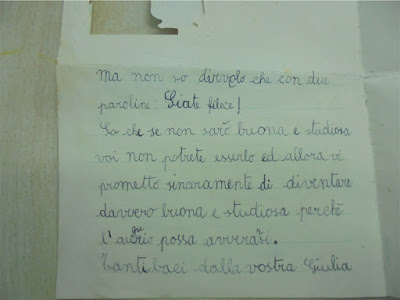 Ma non so dirvelo che con due
paroline: Siate felice!
So che se non sarò buona e studiosa
voi non potrete esserlo ed allora vi
prometto sinceramente di diventare
davvero buona e studiosa perchè
l'augurio possa avverarsi.
Tanti baci dalla vostra Giulia